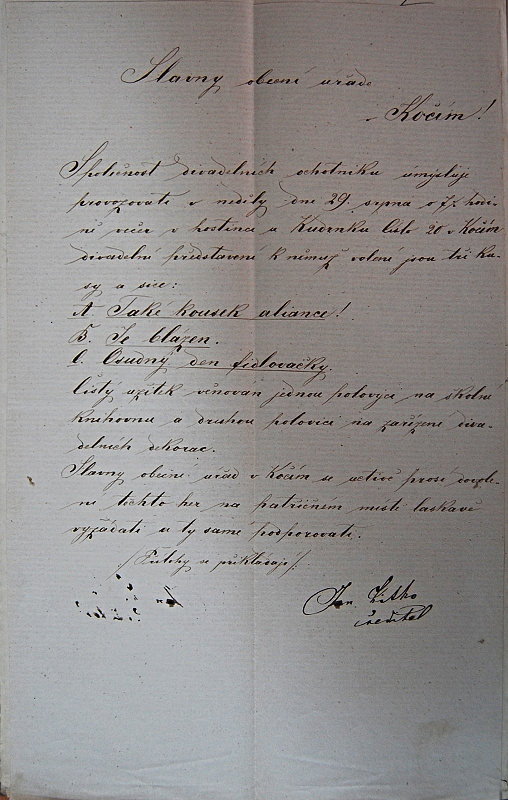 Slavny obecní uřade
Kočím!
Společnost divadelních ochotniku úmysluje
provozovati v neděly dne 29. srpna o 7½ hodi-
ně večer v hostinci u Kudrnku číslo 20 v Kočím
divadelní představené k němuž voleni jsou tři ku-
sy a sice:
A. Také kousek aliance!
B. Je blázen.
C. Osudný den fidlovačky.
Čistý užitek věnován jednou polovyci na školní
knihovnu a druhou polovici na zařízené diva-
delních dekorac.
Slavny obecní úřad v Kočím se uctivě prosí dovole-
ní těchto her na patřičném místě laskavě
vyžádati a ty samé podporovati.
/: se přikládají :/
Jan
ředitel